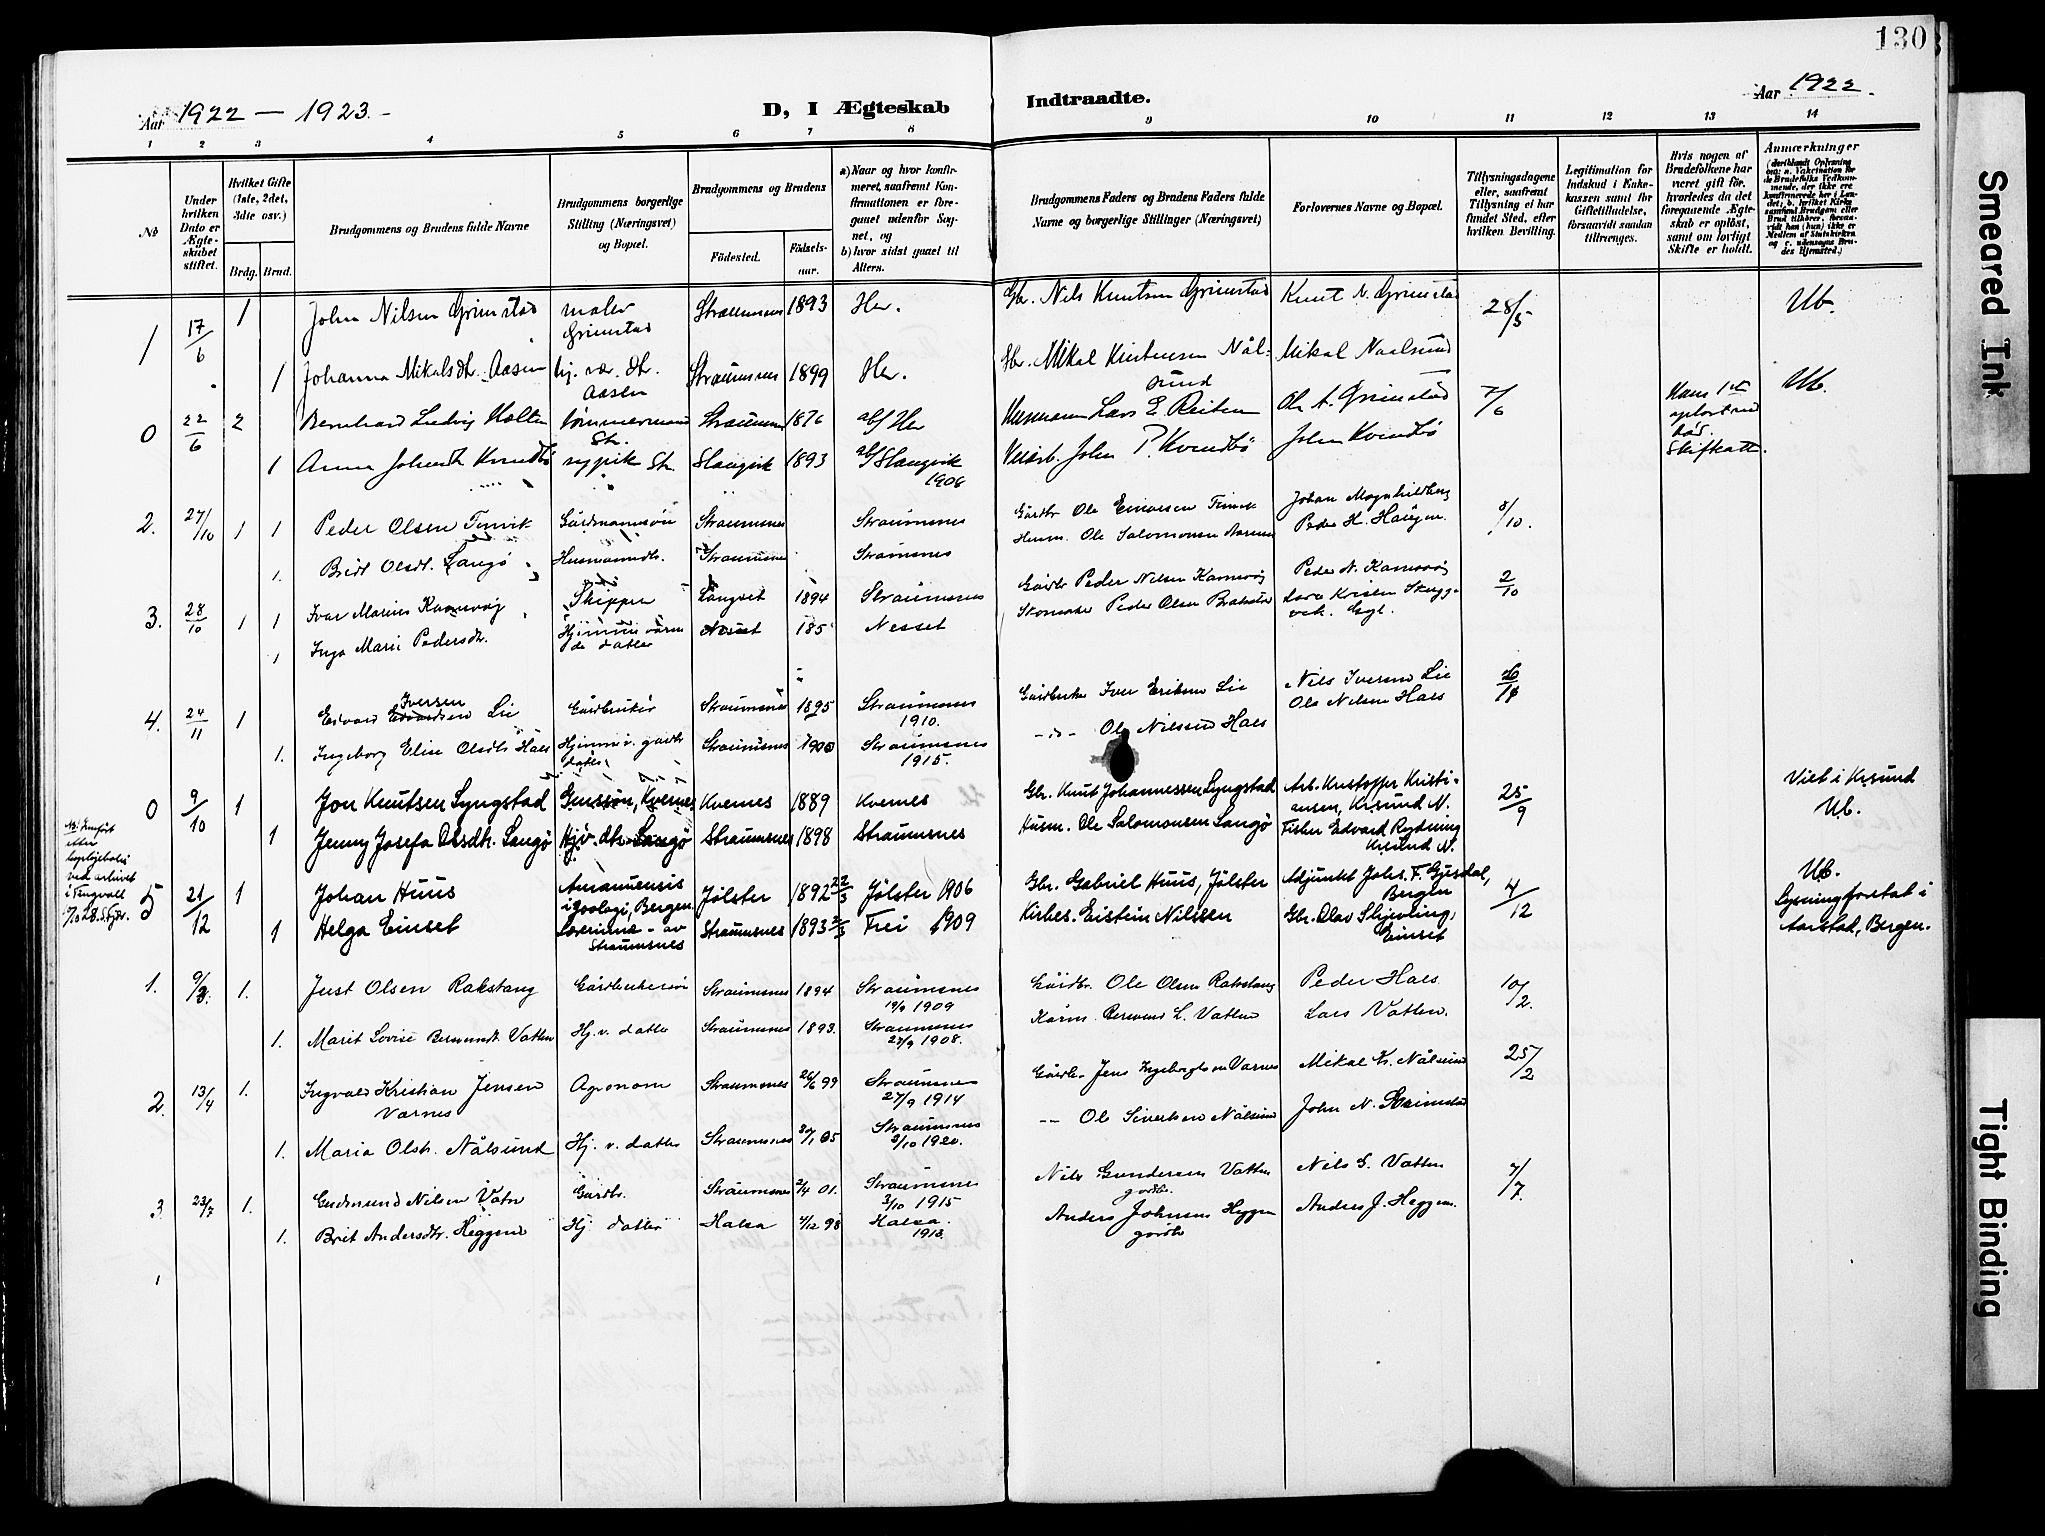 130
Aar 1922 — 1923.
D, I Ægteskab
Indtraadte.
Aar 1922.
1 2 3 4 5 6 7 8 9 10 11 12 13 14
No
Under hvilken Dato er Ægteskabet stiftet.
Hvilket Gifte (1ste, 2det, 3die osv.)
Brdg. Brud.
Brudgommens og Brudens fulde Navne
Brudgommens borgerlige Stilling (Næringsvei) og Bopæl.
Brudgommens og Brudens
Födested.
Födselsaar.
a) Naar og hvor konfirmeret, saafremt Konfirmationen er foregaaet udenfor Sognet, og
b) hvor sidst gaaet til Alters.
Brudgommens Faders og Brudens Faders fulde Navne og borgerlige Stillinger (Næringsvei)
Forlovernes Navne og Bopæl.
Tillysningsdagene eller, saafremt Tillysning ei har fundet Sted, efter hvilken Bevilling.
Legitimation for Indskud i Enkekassen samt for Giftetilladelse, forsaavidt saadan tiltrænges.
Hvis nogen af Brudefolkene har været gift för, hvorledes da det foregaaende Ægteskab er oplöst, samt om lovligt Skifte er holdt.
Anmærkninger
1 17/6 1 John Nilsen Grimstad maler Straumsnes 1893 Her. Gbr. Nils Knutsen Grimstad Knut N. Grimstad 28/5 Ub.
Grimstad
1 Johanna Mikalsdtr. Aasen hj. vær. dtr. Straumsnes 1899 Her. Mikal Kristensen Nål- Mikal Naalsund Ub.
Aasen sund
0 22/6 2 Bernhard Ludvig Holten tømmermand Straumsnes 1876 Her Husmann Lars E. Reiten Ole A. Grimstad 7/6
1 Anna Johnsdtr. Kvendbø Str. Slangvik 1893 Slangvik John P Kvendbø John Kvendbø
1906 Skifteatt.
2. 27/10 1 1 Peder Olsen Timvik Gårdmannssøn Straumsnes Straumsnes Gårdbr Ole Einarsen Timvik Johan Magnhildberg 8/10.
Peder H. Haugen.
1. Brit Olsdt. Langø Husmannsdtr. Straumsnes Straumsnes Husm. Ole Salomonsen
3. 28/10 1 1 Ivar Marius Kamsvåg Skipper 1894 Straumsnes Gårdbr Peder Nilsen Kamsvåg Peder N. Kamsvåg 2/10
1 Inga Marie Pedersdtr. Hjemmeværende datter Nesset 185 Nesset Skomaker Peder Olsen
4. 24/11 1 Edvard Iversen Lie Gårdbruker Straumsnes 1895 Straumsnes Gårdbruker Iver Eriksen Lie Nils Iversen Lie
Edvardsen 1910. Ole Nilsen Haes
1. Ingeborg Elise Olsdtr Haes Hjemmev. gårdbr datter Straumsnes 1900 Straumsnes — " — Ole Nilssen Haes
1915.
0 9/10 1 Jon Knutsen Lyngstad Kvernes Kvernes 1889 Kvernes Gbr. Knut Johannessen Lyngstad Arb. Kristoffer Kristi- 25/9 Viet i Krsund
ansen, Krsund N. Ub.
1 Jenny Josefa Olsdtr. Langø Hjv. dtr. Langø Straumsnes 1898 Straumsnes Husm. Ole Salomonsen Langø Fisker Edvard Rydning
Krsund N.
5 21/12 1 Johan Huus Amanuensis Jølster 1892 22/3 Jølster 1906 Gbr. Gabriel Huus, Jølster Adjunkt Johs. F. Gjesdal, 4/12 Ub.
i zoologi, Bergen. Bergen Lysning foretat i
1 Helga Einset Lærerinne - av Straumsnes 1893 Frei 1909 Kirkes. Eistein Nilssen Gbr. Olav Skjevling, Aarstad, Bergen.
Straumsnes Einset
1. 9/3. 1. Just Olsen Rakstang Gårdbrukersøn Straumsnes 1894 Straumsnes Gårdbr. Ole Olsen Rakstang Peder Haes 10/2.
1909
1. Marit Lovise Vatten Hj. v. datter Straumsnes 1893. Straumsnes Kårm. L. Vatten Lars Vatten.
27/9 1908.
2. 13/4 1. Ingvald Kristian Jensen Agronom Straumsnes 26/6 99 Straumsnes Gårdbr. Jens Ingebrigtsen Varnes Mikal Kr. Nålsund 25/2
Varnes 27/9 1914
1. Maria Olsdtr. Nålsund Hj. v. datter Straumsnes 30/1 05 Straumsnes — Ole Sivertsen Nålsund John N. Grimstad
3/10 1920.
3. 23/7 1. Gudmund Nilsen Vatn Gårdbr. Straumsnes 2/4 01. Straumsnes Nils Gundersen Vatten Nils G. Vatten 7/7.
3/10 1915 gårdbr.
1. Brit Andersdtr. Heggem Hj datter Halsa 98 Halsa. Anders Johnsen Heggem Anders J. Heggem.
1913. gårdbr
Smeared Ink
Tight Binding